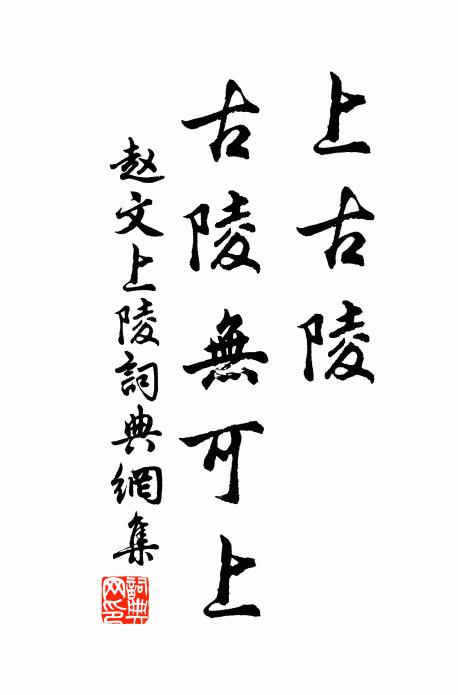 上古陵
古陵無可上
赵文上陵詞典網集
詞典网印